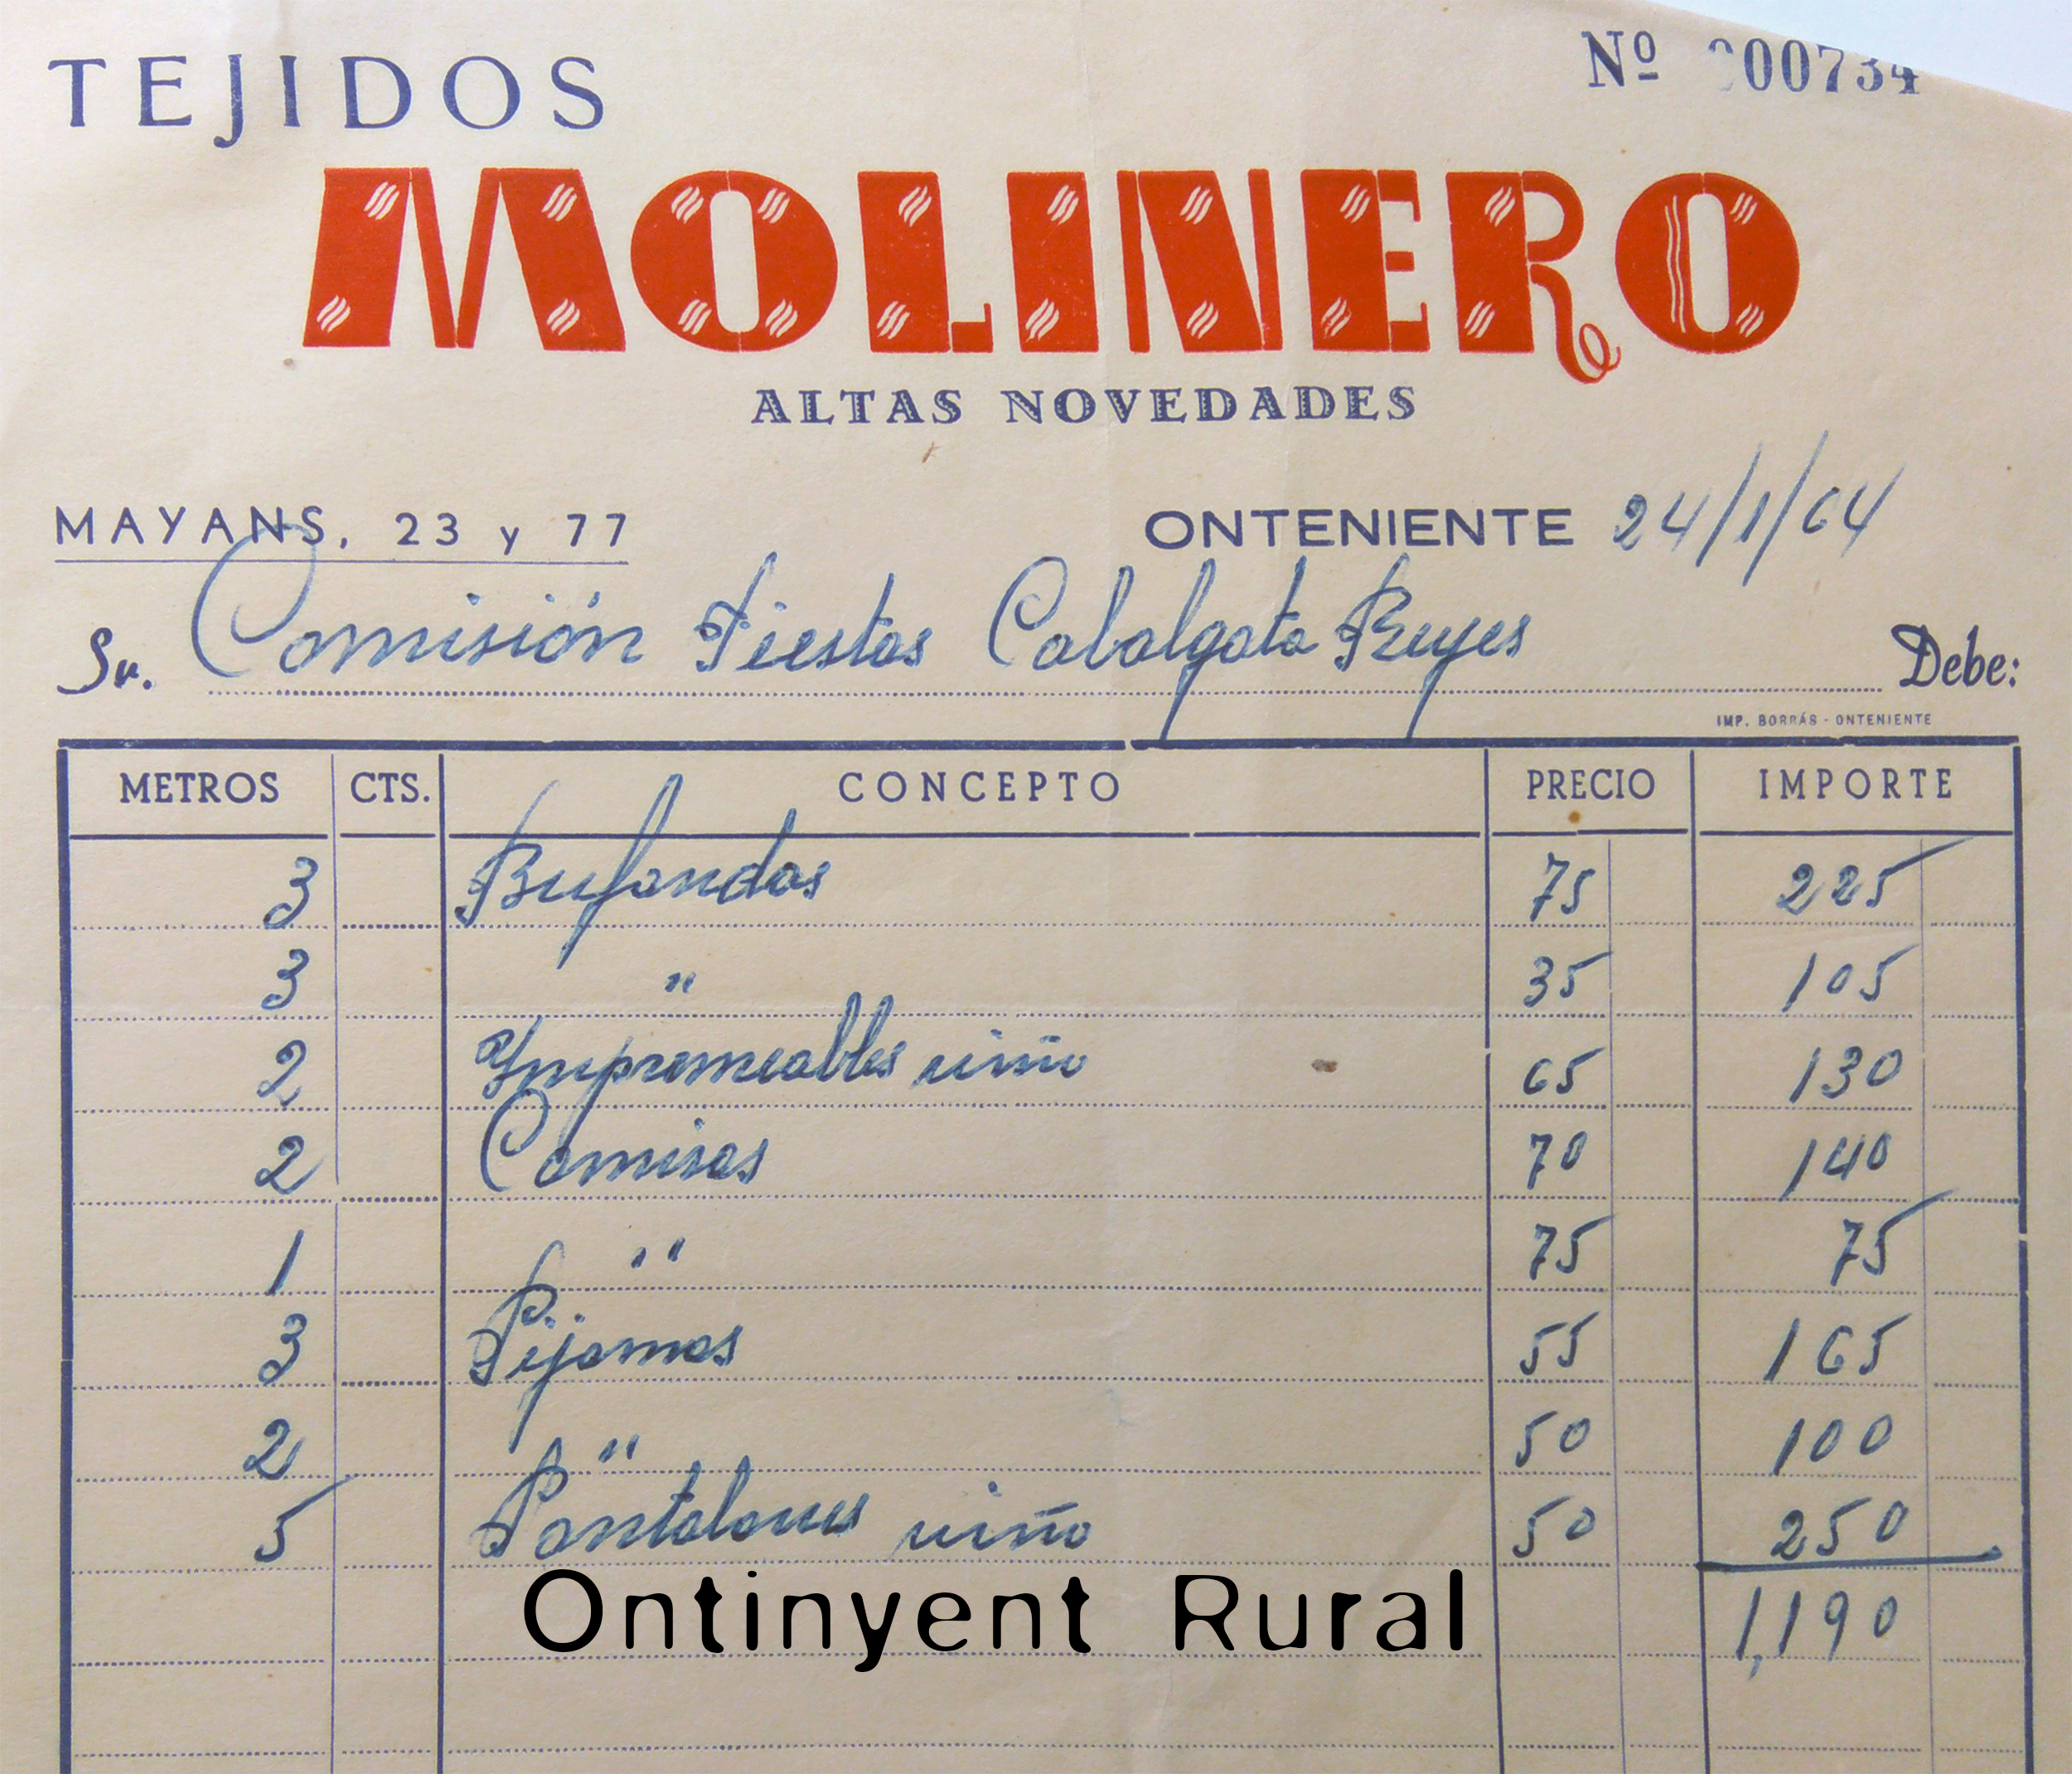 TEJIDOS
Nº 000734
MOLINERO
ALTAS NOVEDADES
MAYANS, 23 y 77
ONTENIENTE 24/1/64
Sr. Comisión Fiestas Cabalgata Reyes Debe:
IMP. BORRÁS - ONTENIENTE
METROS CTS. CONCEPTO PRECIO IMPORTE
3 Bufandas 75 225
3 " 35 105
2 Ympremeables niño 65 130
2 Camisas 70 140
1 " 75 75
3 Pijamas 55 165
2 " 50 100
5 Pantalones niño 50 250
Ontinyent Rural
1,190